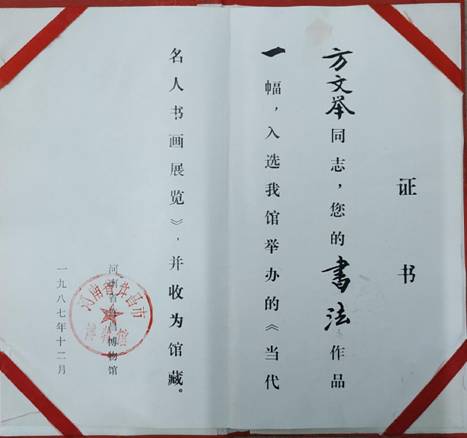 证书
方文举同志，您的書法作品
一幅，入选我馆举办的《当代
名人书画展览》，并收为馆藏。
河南省许昌博物馆
一九八七年十二月
河南省许昌市
博物馆